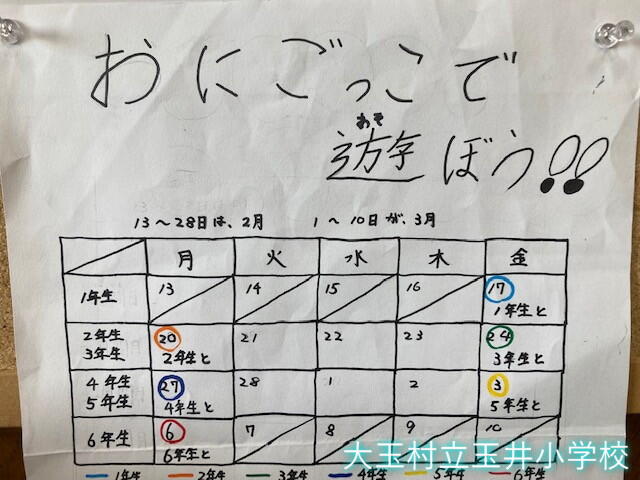 おにごっこで
あそ
遊ぼう!!
13〜28日は、2月 1〜10日が、3月
月 火 水 木 金
1年生 13 14 15 16 17
1年生と
2年生 3年生 20 21 22 23 24
2年生と 3年生と
4年生 5年生 27 28 1 2 3
4年生と 5年生と
6年生 6 7 8 9 10
6年生と
大玉村立玉井小学校
1年生 2年生 3年生 4年生 5年生 6年生